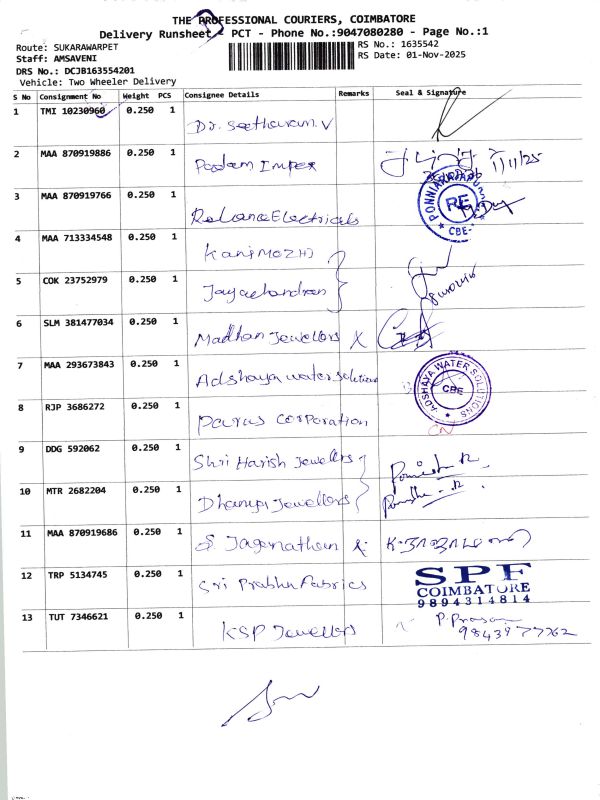 THE PROFESSIONAL COURIERS, COIMBATORE
Delivery Runsheet - PCT - Phone No.:9047080280 - Page No.:1
Route: SUKARAWARPET
RS No.: 1635542
Staff: AMSAVENI
RS Date: 01-Nov-2025
DRS No.: DCJB163554201
Vehicle: Two Wheeler Delivery
S No Consignment No Weight PCS Consignee Details Remarks Seal & Signature
1 TMI 10230960 0.250 1 Dr. Seetharam.V
2 MAA 870919886 0.250 1 Padam Impex 1/11/25
3 MAA 870919766 0.250 1 Reliance Electricals RE CBE-
4 MAA 713334548 0.250 1 Kanimozhi
5 COK 23752979 0.250 1 Jayachandran
6 SLM 381477034 0.250 1 Madhan Jewellers X
7 MAA 293673843 0.250 1 Adshaya water solutions ADSHAYA WATER SOLUTIONS CBE
8 RJP 3686272 0.250 1 Paras Corporation
9 DDG 592062 0.250 1 Shri Harish Jewellers
10 MTR 2682204 0.250 1 Dhanya Jewellers
11 MAA 870919686 0.250 1 S. Jaganathan
12 TRP 5134745 0.250 1 Sri Prabhu Fabrics SPF
COIMBATORE
9894314814
13 TUT 7346621 0.250 1 KSP Jewellers